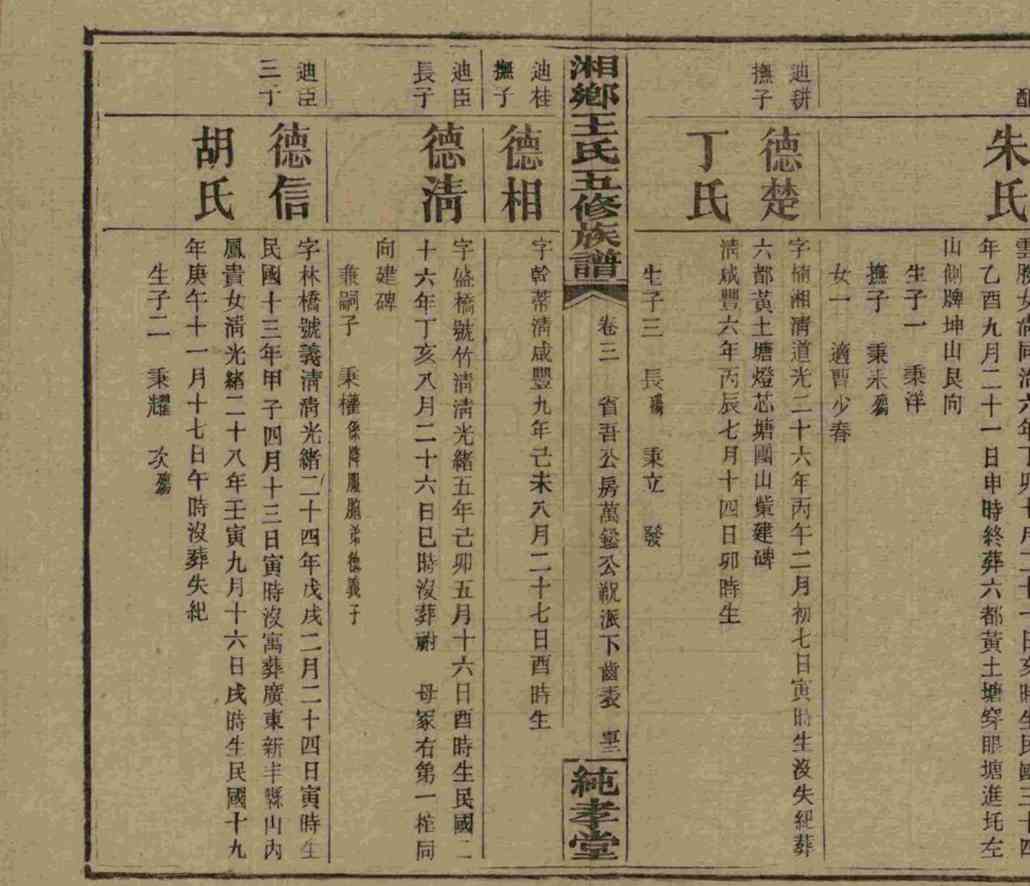 朱氏
年乙酉九月二十一日申時終葬六都黃土塘穿眼塘進圫左
山側牌坤山艮向
生子一 秉洋
撫子 秉未殤
女一 適曹少春
迪耕
撫子
德楚
字楠湘清道光二十六年丙午二月初七日寅時生沒失紀葬
六都黃土塘燈芯塘國山紫建碑
丁氏
清咸豐六年丙辰七月十四日卯時生
生子三 長殤 秉立 發
湘鄉王氏五修族譜
卷三 省吾公房萬鎰公派下齒表
純孝堂
迪桂
撫子
德相
字幹蒂清咸豐九年己未八月二十七日酉時生
迪臣
長子
德清
字盛橋號竹清清光緒五年己卯五月十六日酉時生民國二
十六年丁亥八月二十六日巳時沒葬祔 母冢右第一棺同
向建碑
兼嗣子 秉權係降服胞弟德義子
迪臣
三子
德信
字林橋號義清清光緒二十四年戊戌二月二十四日寅時生
民國十三年甲子四月十三日寅時沒寓葬廣東新丰縣山內
胡氏
鳳貴女清光緒二十八年壬寅九月十六日戌時生民國十九
年庚午十一月十七日午時沒葬失紀
生子二 秉耀 次殤